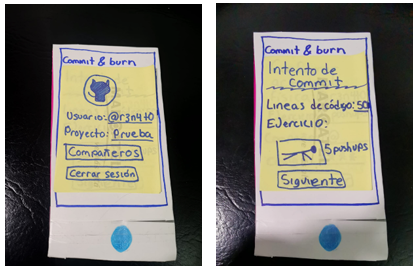 Commit & burn
Usuario: @r3n4t0
Proyecto: Prueba
Compañeros
Cerrar sesión
Commit & burn
Intento de
Commit
Lineas de código: 50
Ejercicio:
5 pushups
Siguiente